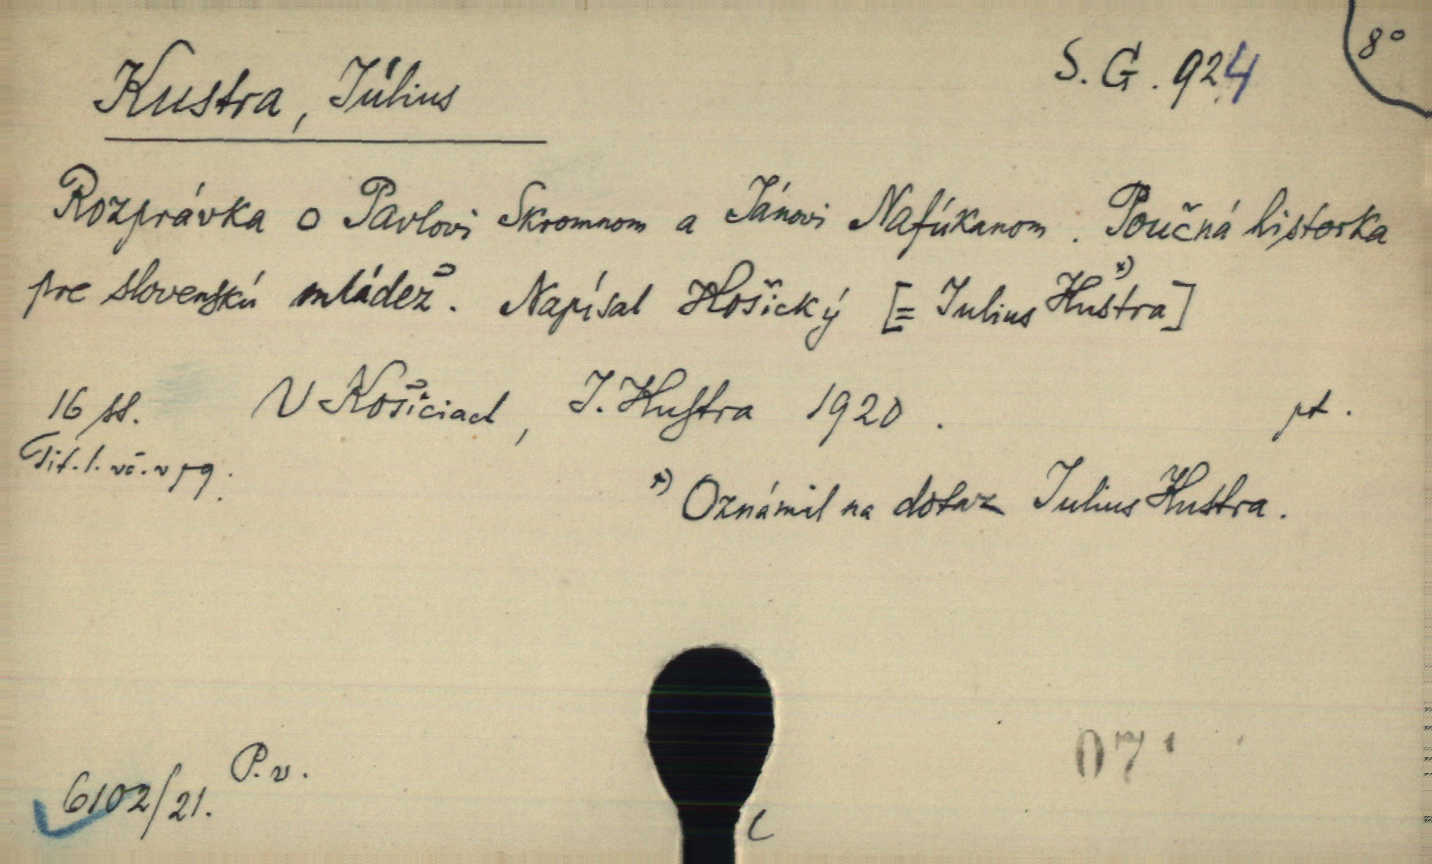 8°
S. G. 924
Kustra, Július
Rozprávka o Pavlovi Skromnom a Jánovi Nafúkanom. Poučná historka
pre slovenskú mládež. Napísal Košický [= Julius Kustra *)]
16 ss. V Košiciach, J. Kustra 1920. pt.
Tit. l. vč. v pg.
*) Oznámil na dotaz Julius Kustra.
6102/21. P. v.
07
C